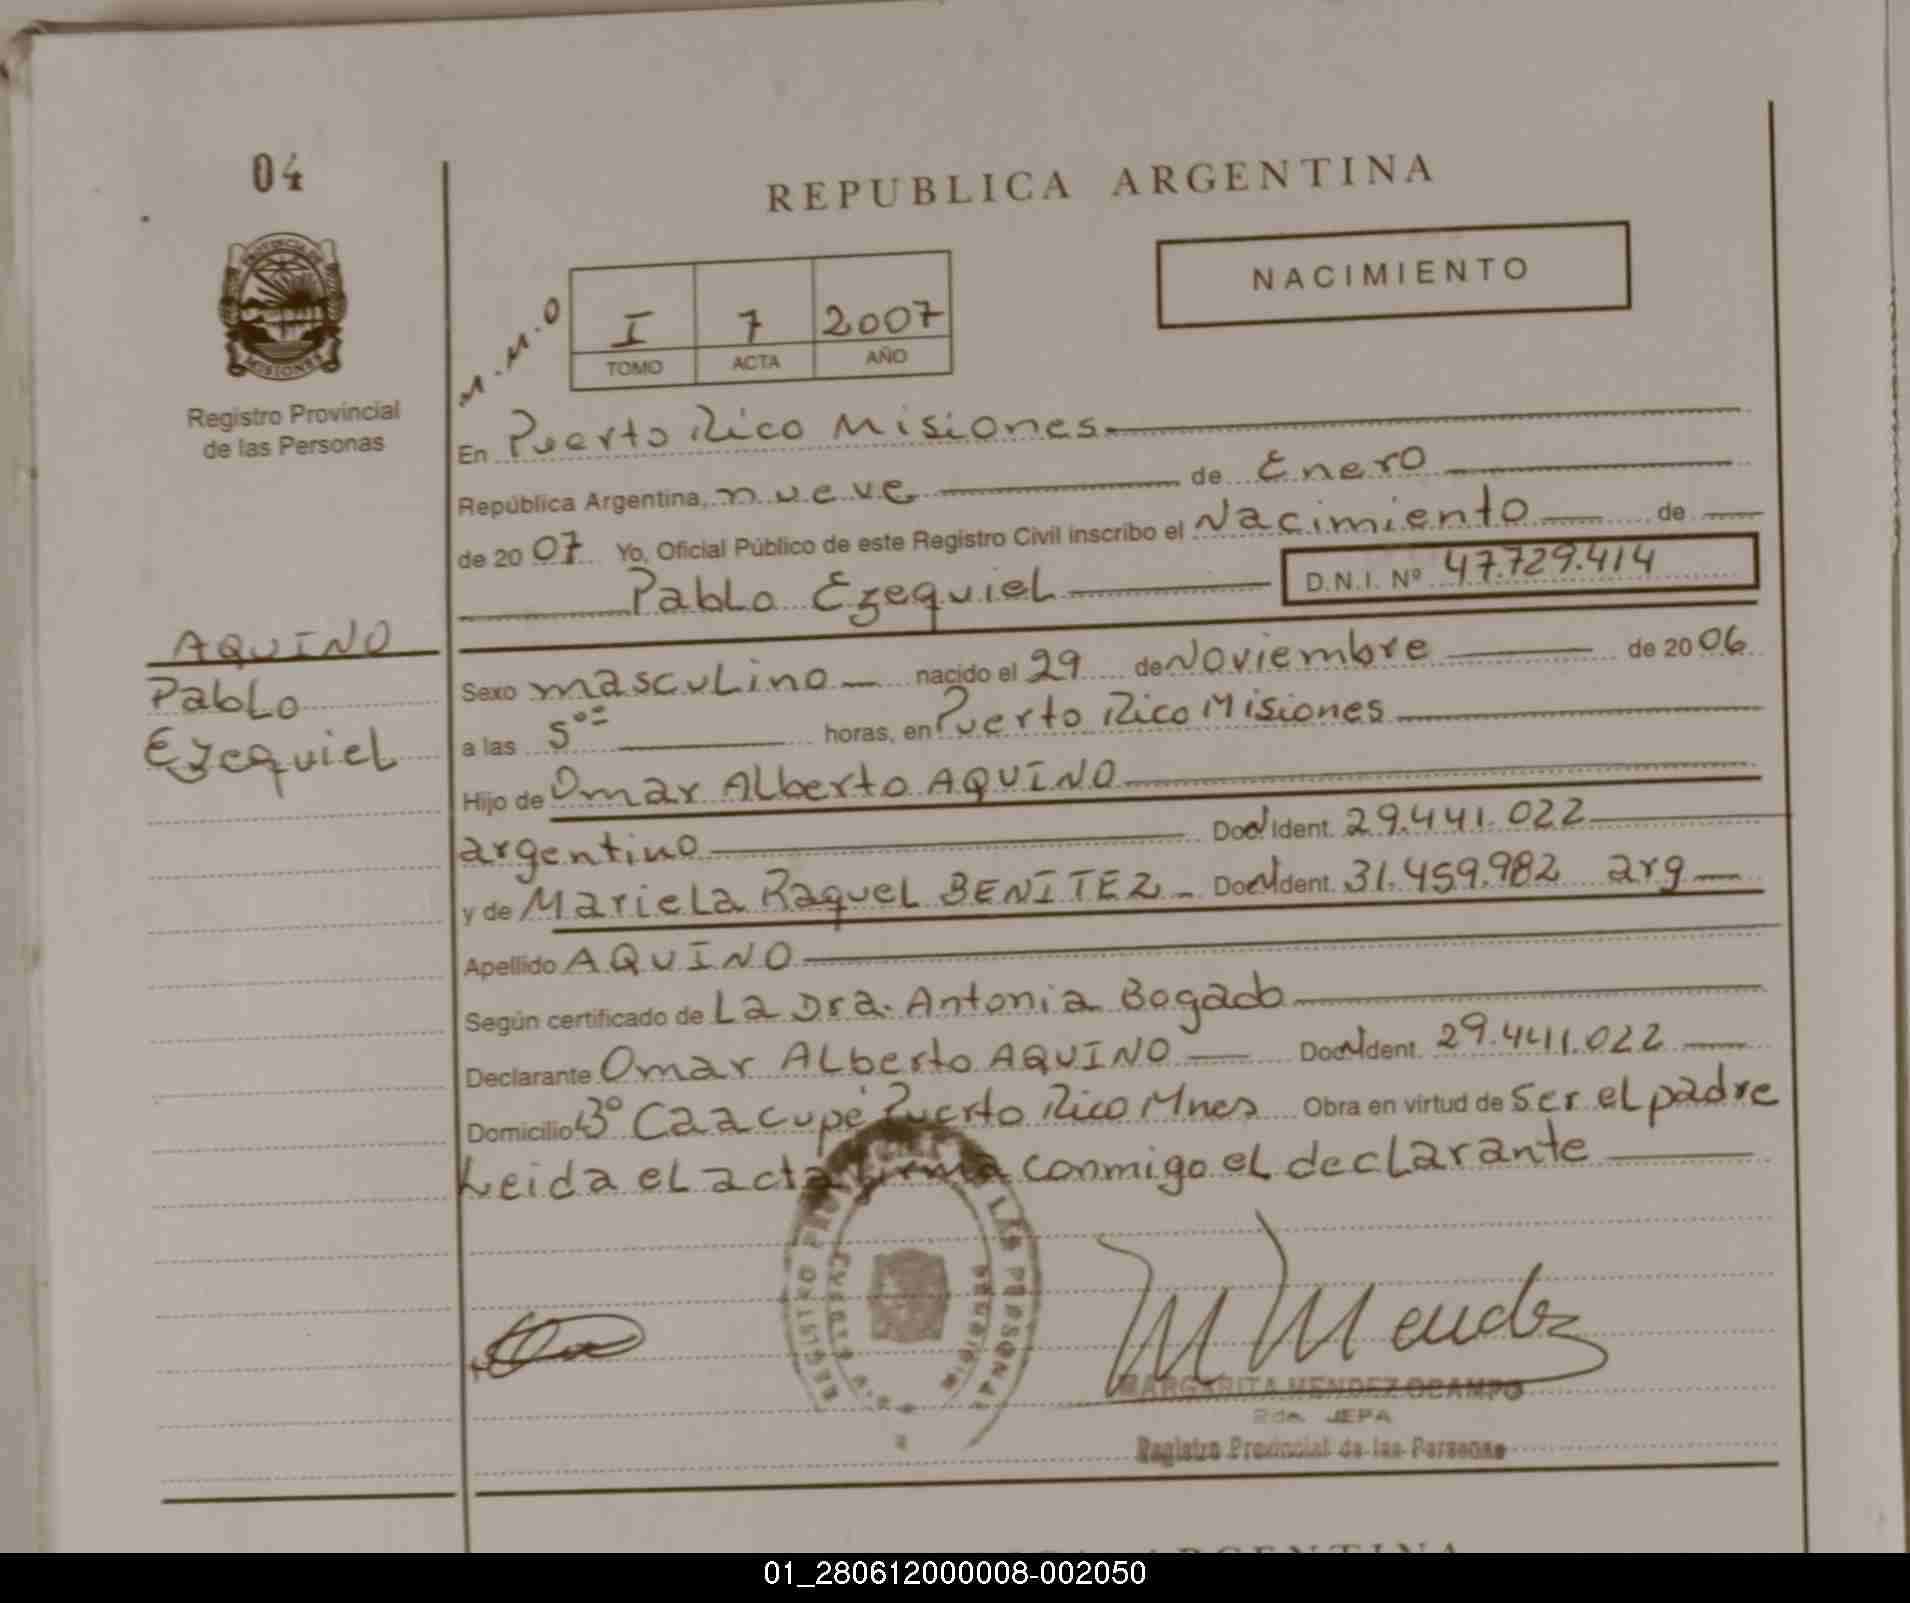 04
REPUBLICA ARGENTINA
NACIMIENTO
PROVINCIA DE
MISIONES
Registro Provincial
de las Personas
M.M.O
I 7 2007
TOMO ACTA AÑO
En Puerto Rico Misiones
República Argentina, nueve de Enero
de 2007 Yo, Oficial Público de este Registro Civil inscribo el Nacimiento de
Pablo Ezequiel D.N.I. Nº 47.729.414
AQUINO
Pablo
Ezequiel
Sexo masculino nacido el 29 de Noviembre de 2006
a las 5⁰⁰ horas, en Puerto Rico Misiones
Hijo de Omar Alberto AQUINO
argentino Doc N Ident. 29.441.022
y de Mariela Raquel BENITEZ Doc N Ident. 31.459.982 arg
Apellido AQUINO
Según certificado de La Dra. Antonia Bogado
Declarante Omar Alberto AQUINO Doc N Ident. 29.441.022
Domicilio Bº Caacupé Puerto Rico Mnes Obra en virtud de Ser el padre
Leida el acta firma conmigo el declarante
REGISTRO PROVINCIAL DE LAS PERSONAS
PUERTO RICO
MISIONES
M Mendez
MARGARITA MENDEZ OCAMPO
2da. JEFA
Registro Provincial de las Personas
REPUBLICA ARGENTINA
01_280612000008-002050